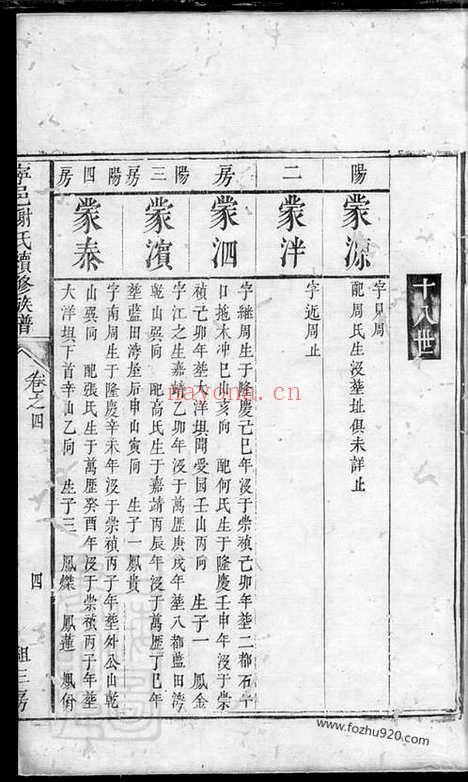 十八世
陽 二 房 陽 三 陽 四 房
蒙源
字見周
配周氏生沒塟址俱未詳止
蒙泮
字近周止
蒙泗
字繼周生于隆慶己巳年沒于崇禎己卯年塟二都石
口拖木冲巳山亥向 配何氏生于隆慶壬申年沒于崇
禎己卯年塟大洋垻聞愛园壬山丙向 生子一 鳳金
蒙濱
字江之生嘉靖乙卯年沒于萬歷庚戌年塟八都藍田灣
乾山巽向 配高氏生于嘉靖丙辰年沒于萬歷丁巳年
塟藍田灣屋后申山寅向 生子一鳳貴
蒙泰
字南周生于隆慶辛未年沒于崇禎丙子年塟外公山乾
山巽向 配張氏生于萬歷癸酉年沒于崇禎丙子年塟
大洋垻下首辛山乙向 生子三 鳳傑 鳳蓮 鳳
寧邑謝氏續修族譜
卷之四
四
祖三房
nayona.cn
www.fozhu920.com